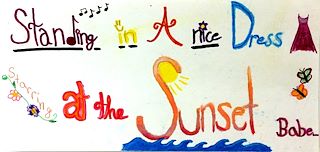 Standing in A nice Dress
Staring at the Sunset
Babe